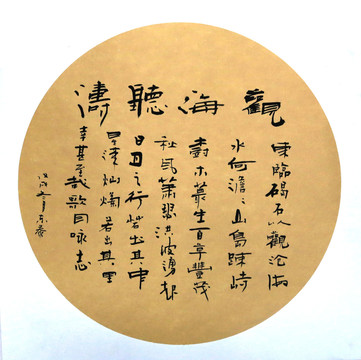 觀海聽濤
東臨碣石以觀滄海
水何澹〻山島竦峙
樹木叢生百草豐茂
秋風蕭瑟洪波湧起
日月之行若出其中
星漢燦爛若出其里
幸甚至哉歌以咏志